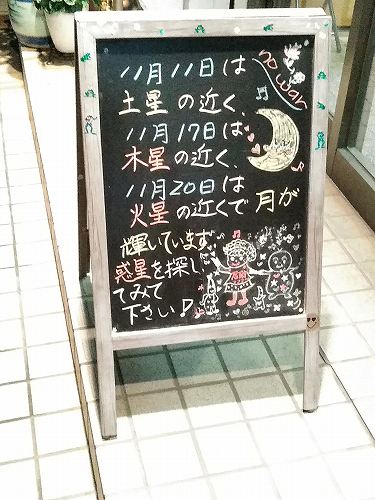 no war
11月11日は
土星の近く、
11月17日は
木星の近く、
11月20日は
火星の近くで 月が
輝いています
惑星を探し
てみて
下さい♪